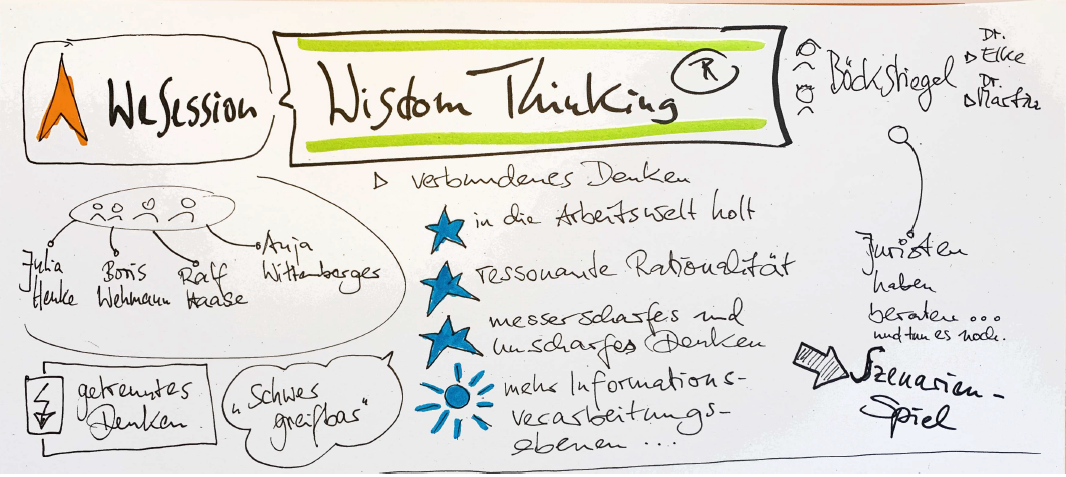 WeSession
Wisdom Thinking ®
Böckstiegel
Dr.
Elke
Dr.
Martin
verbundenes Denken
in die Arbeitswelt holt
ressonante Rationalität
messerscharfes und
unscharfes Denken
mehr Informations-
verarbeitungs-
ebenen ...
Julia
Henke
Boris
Wehmann
Ralf
Haase
Anja
Wittenberger
getrenntes
Denken
"Schwer
greifbar"
Juristen
haben
beraten ...
und tun es noch.
Szenarien-
Spiel